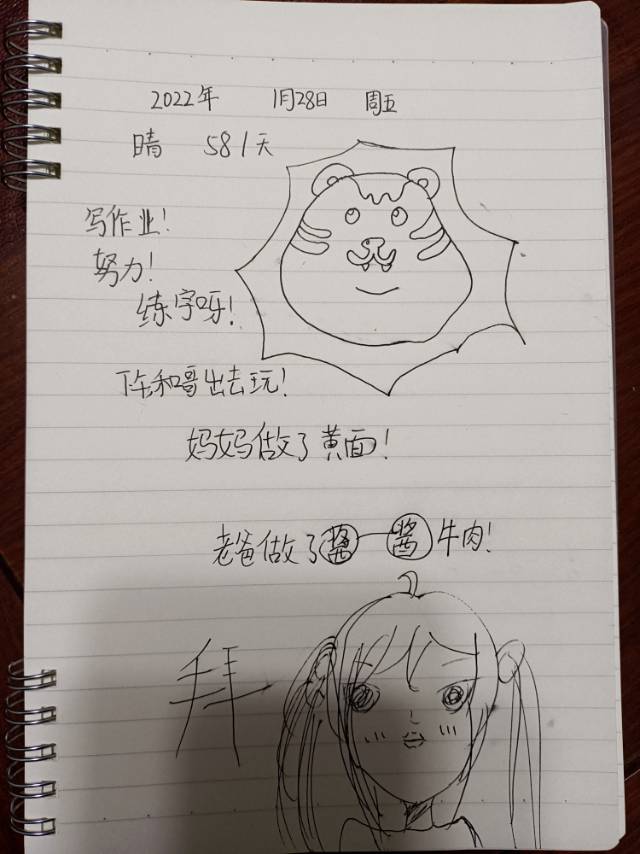 2022年 1月28日 周五
晴 581天
写作业!
努力!
练字呀!
下午和哥出去玩!
妈妈做了黄面!
老爸做了酱牛肉!
拜